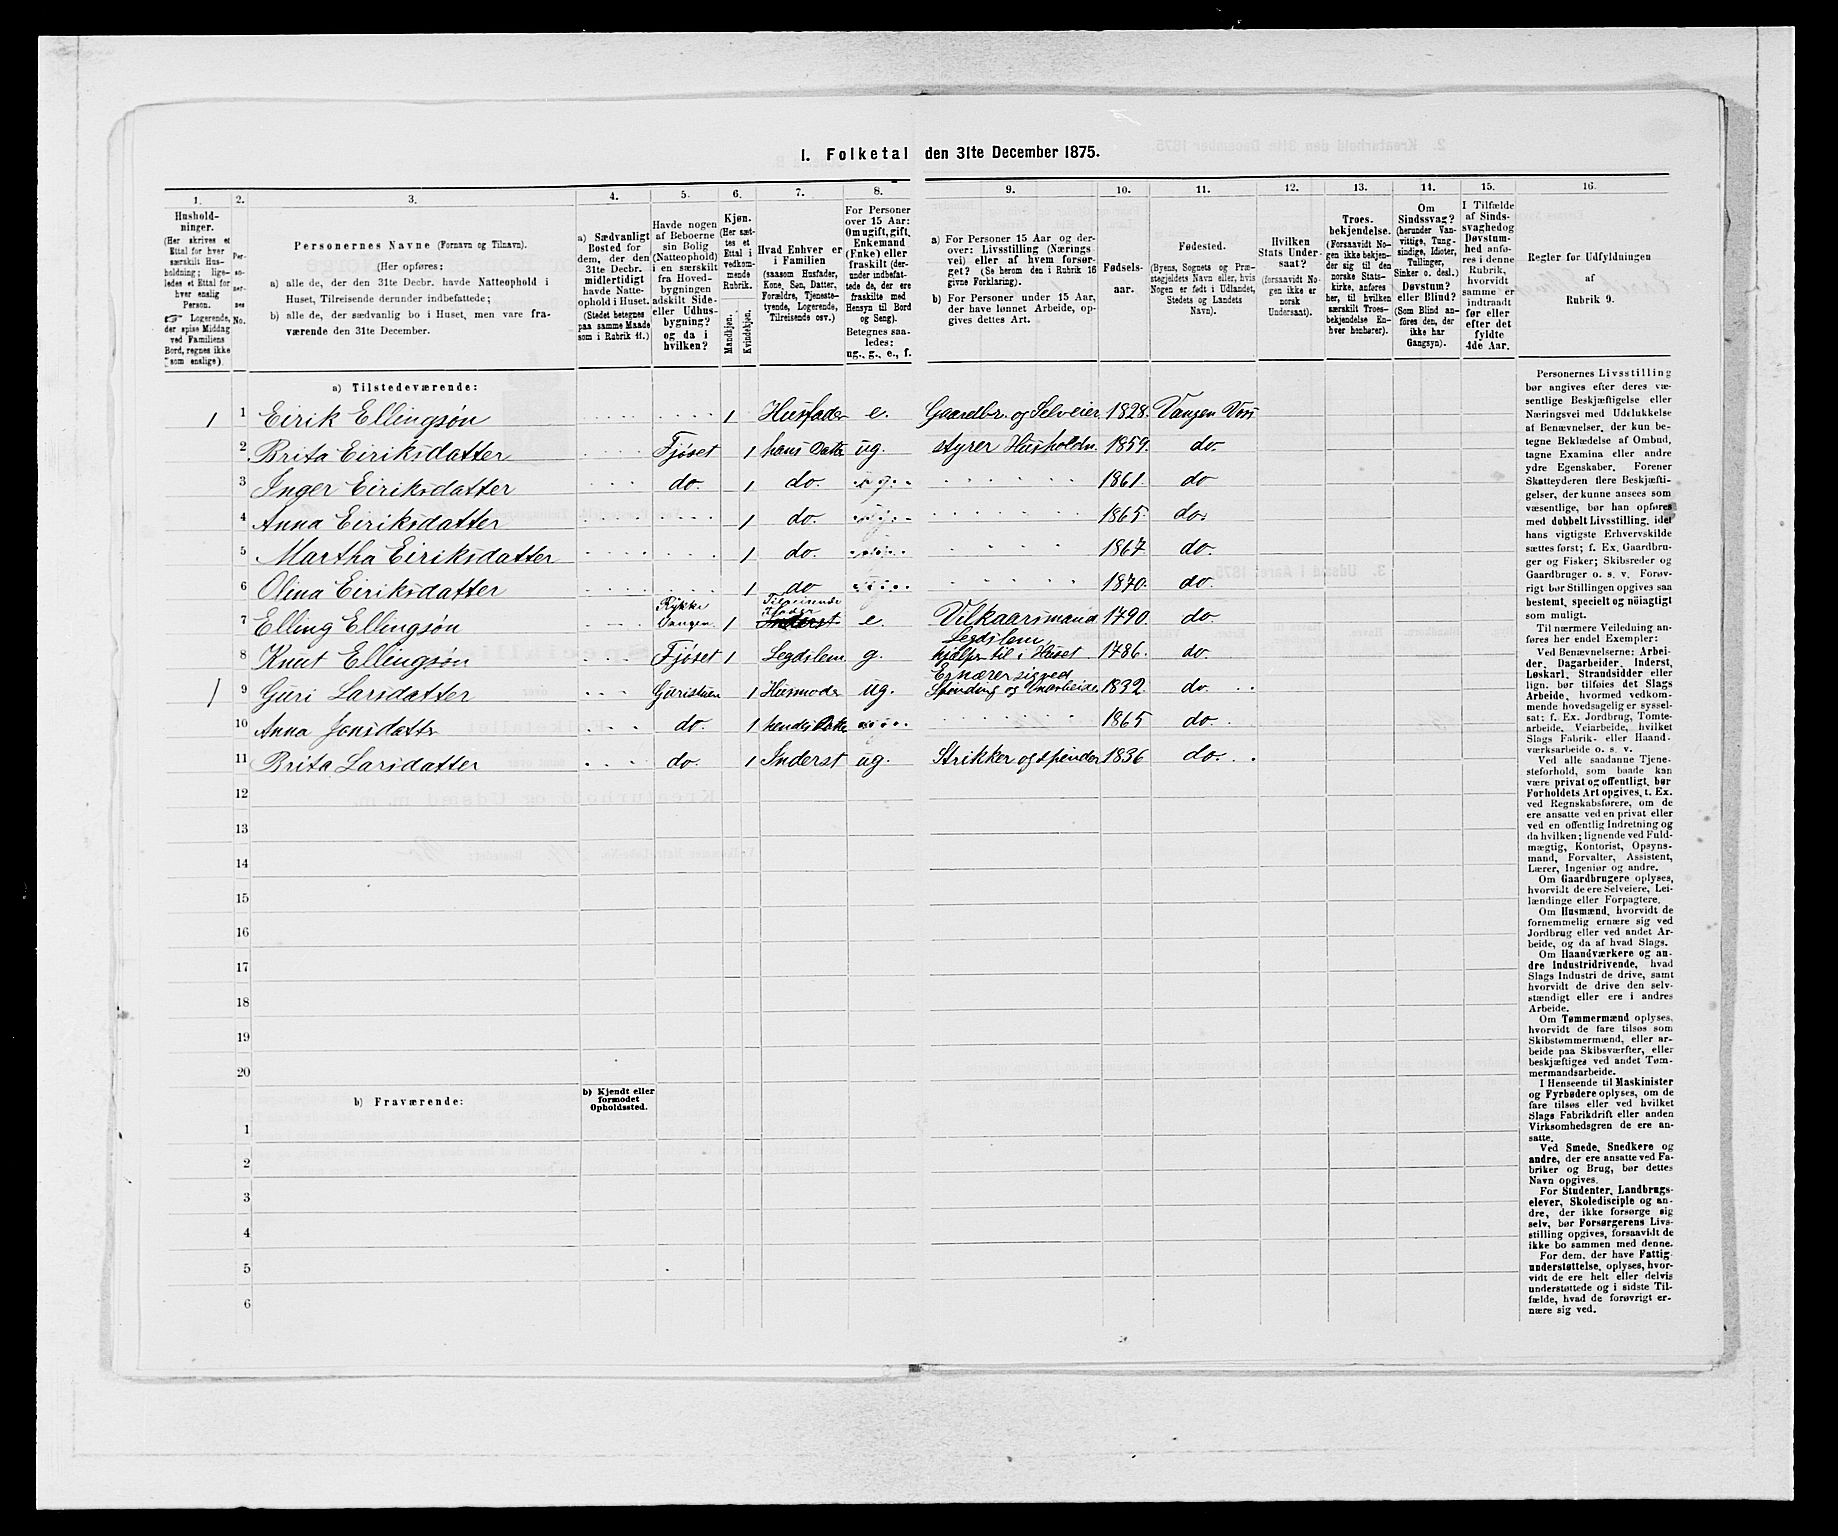 1. Folketal den 31te December 1875.
1. 2. 3. 4. 5. 6. 7. 8. 9. 10. 11. 12. 13. 14. 15. 16.
Hushold-
ninger.
(Her skrives et
Ettal for hver
særskilt Hus-
holdning; lige-
ledes et Ettal for
hver enslig
Person.
☞ Logerende,
der spise Middag
ved Familiens
Bord, regnes ikke
som enslige.)
Per-
so-
ner-
nes
No.
Personernes Navne (Fornavn og Tilnavn).
(Her opføres:
a) alle de, der den 31te Decbr. havde Natteophold i
Huset, Tilreisende derunder indbefattede;
b) alle de, der sædvanlig bo i Huset, men vare fra-
værende den 31te December.
a) Sædvanligt
Bosted for
dem, der den
31te Decbr.
midlertidigt
havde Natte-
ophold i Huset.
(Stedet betegnes
paa samme Maade
som i Rubrik 11.)
Havde nogen
af Beboerne
sin Bolig
(Natteophold)
i en særskilt
fra Hoved-
bygningen
adskilt Side-
eller Udhus-
bygning?
og da i
hvilken?
Kjøn.
(Her sæt-
tes et
Ettal i
vedkom-
mende
Rubrik.
Mandkjøn.
Kvindekjøn.
Hvad Enhver er
i Familien
(saasom Husfader,
Kone, Søn, Datter,
Forældre, Tjeneste-
tyende, Logerende,
Tilreisende osv.)
For Personer
over 15 Aar:
Om ugift, gift,
Enkemand
(Enke) eller
fraskilt (der-
under indbefat-
tede de, der ere
fraskilte med
Hensyn til Bord
og Seng).
Betegnes saa-
ledes:
ug., g., e., f.
a) For Personer 15 Aar og der-
over: Livsstilling (Nærings-
vei) eller af hvem forsør-
get? (Se herom den i Rubrik 16
givne Forklaring).
b) For Personer under 15 Aar,
der have lønnet Arbeide, op-
gives dettes Art.
Fødsels-
aar.
Fødested.
(Byens, Sognets og Præ-
stegjeldets Navn eller, hvis
Nogen er født i Udlandet,
Stedets og Landets
Navn).
Hvilken
Stats Under-
saat?
(forsaavidt No-
gen ikke er
norsk
Undersaat).
Troes-
bekjendelse.
(Forsaavidt No-
gen ikke bekjen-
der sig til den
norske Stats-
kirke, anføres
her, til hvilken
særskilt Troes-
bekjendelse En-
hver henhører).
Om
Sindssvag?
(herunder Van-
vittige, Tung-
sindige, Idioter,
Tullinger,
Sinker o. desl.)
Døvstum?
eller Blind?
(Som Blind an-
føres den, der
ikke har
Gangsyn).
I Tilfælde
af Sinds-
svaghed og
Døvstum-
hed anfø-
res i denne
Rubrik,
hvorvidt
samme er
indtraadt
før eller
efter det
fyldte
4de Aar.
Regler for Udfyldningen
af
Rubrik 9.
a) Tilstedeværende:
1 1 Eirik Ellingsøn 1 Husfader e. Gaardbr. og Selveier 1828. Vangen Voss
2 Brita Eiriksdatter Fjøset 1 hans Datter ug. styrer Husholdn. 1859. do.
3 Inger Eiriksdatter do. 1 do. 1861. do
4 Anna Eiriksdatter 1 do. 1865. do.
5 Martha Eiriksdatter 1 do. 1867 do.
6 Olina Eiriksdatter 1 do 1870. do.
7 Elling Ellingsøn 1 Inderst e. Vilkaarsmand 1790. do
8 Knut Ellingsøn Fjøset 1 Legdslem g. Legdslem
hjelper til i Huset. 1786. do.
1 9 Guri Larsdatter 1 Husmoder ug. Ernærer sig ved
Spinding og 1832. do.
10 Anna Jonsdatter do. 1 hendes Datter 1865 do.
11 Brita Larsdatter do. 1 Inderst ug. Strikker og spinder 1836 do.
12
13
14
15
16
17
18
19
20
b) Fraværende:
b) Kjendt eller
formodet
Opholdssted.
1
2
3
4
5
6
Personernes Livsstilling
bør angives efter deres væ-
sentlige Beskjæftigelse eller
Næringsvei med Udelukkelse
af Benævnelser, der kun be-
tegne Beklædelse af Ombud,
tagne Examina eller andre
ydre Egenskaber. Forener
Skatteyderen flere Beskjæfti-
gelser, der kunne ansees som
væsentlige, bør han opføres
med dobbelt Livsstilling, idet
hans vigtigste Erhvervskilde
sættes først; f. Ex. Gaardbru-
ger og Fisker; Skibsreder og
Gaardbruger o. s. v. Forøv-
rigt bør Stillingen opgives saa
bestemt, specielt og nøiagtigt
som muligt.
Til nærmere Veiledning an-
føres her endel Exempler:
Ved Benævnelserne: Arbei-
der, Dagarbeider, Inderst,
Løskarl, Strandsidder eller
lign. bør tilføies det Slags
Arbeide, hvormed vedkom-
mende hovedsagelig er syssel-
sat; f. Ex. Jordbrug, Tomte-
arbeide, Veiarbeide, hvilket
Slags Fabrik- eller Haand-
værksarbeide o. s. v.
Ved alle saadanne Tjene-
steforhold, som baade kan
være privat og offentligt, bør
Forholdets Art opgives, t. Ex.
ved Regnskabsførere, om de
ere ansatte ved en privat eller
ved en offentlig Indretning og
da hvilken; lignende ved Fuld-
mægtig, Kontorist, Opsyns-
mand, Forvalter, Assistent,
Lærer, Ingeniør og andre.
Om Gaardbrugere oplyses,
hvorvidt de ere Selveiere, Lei-
lændinge eller Forpagtere.
Om Husmænd, hvorvidt de
fornemmelig ernære sig ved
Jordbrug eller ved andet Ar-
beide, og da af hvad Slags.
Om Haandværkere og an-
dre Industridrivende, hvad
Slags Industri de drive, samt
hvorvidt de drive den selv-
stændigt eller ere i andres
Arbeide.
Om Tømmermænd oplyses,
hvorvidt de fare tilsøs som
Skibstømmermænd, eller ar-
beide paa Skibsværfter, eller
beskjæftiges ved andet Tøm-
mermandsarbeide.
I Henseende til Maskinister
og Fyrbødere oplyses, om de
fare tilsøs eller ved hvilket
Slags Fabrikdrift eller anden
Virksomhedsgren de ere an-
satte.
Ved Smede, Snedkere og
andre, der ere ansatte ved Fa-
briker og Brug, bør dettes
Navn opgives.
For Studenter, Landbrugs-
elever, Skoledisciple og an-
dre, der ikke forsørge sig
selv, bør Forsørgerens Livs-
stilling opgives, forsaavidt de
ikke bo sammen med denne.
For dem, der have Fattig-
understøttelse, oplyses, hvor-
vidt de ere helt eller delvis
understøttede og i sidste Til-
fælde, hvad de forøvrigt er-
nære sig ved.